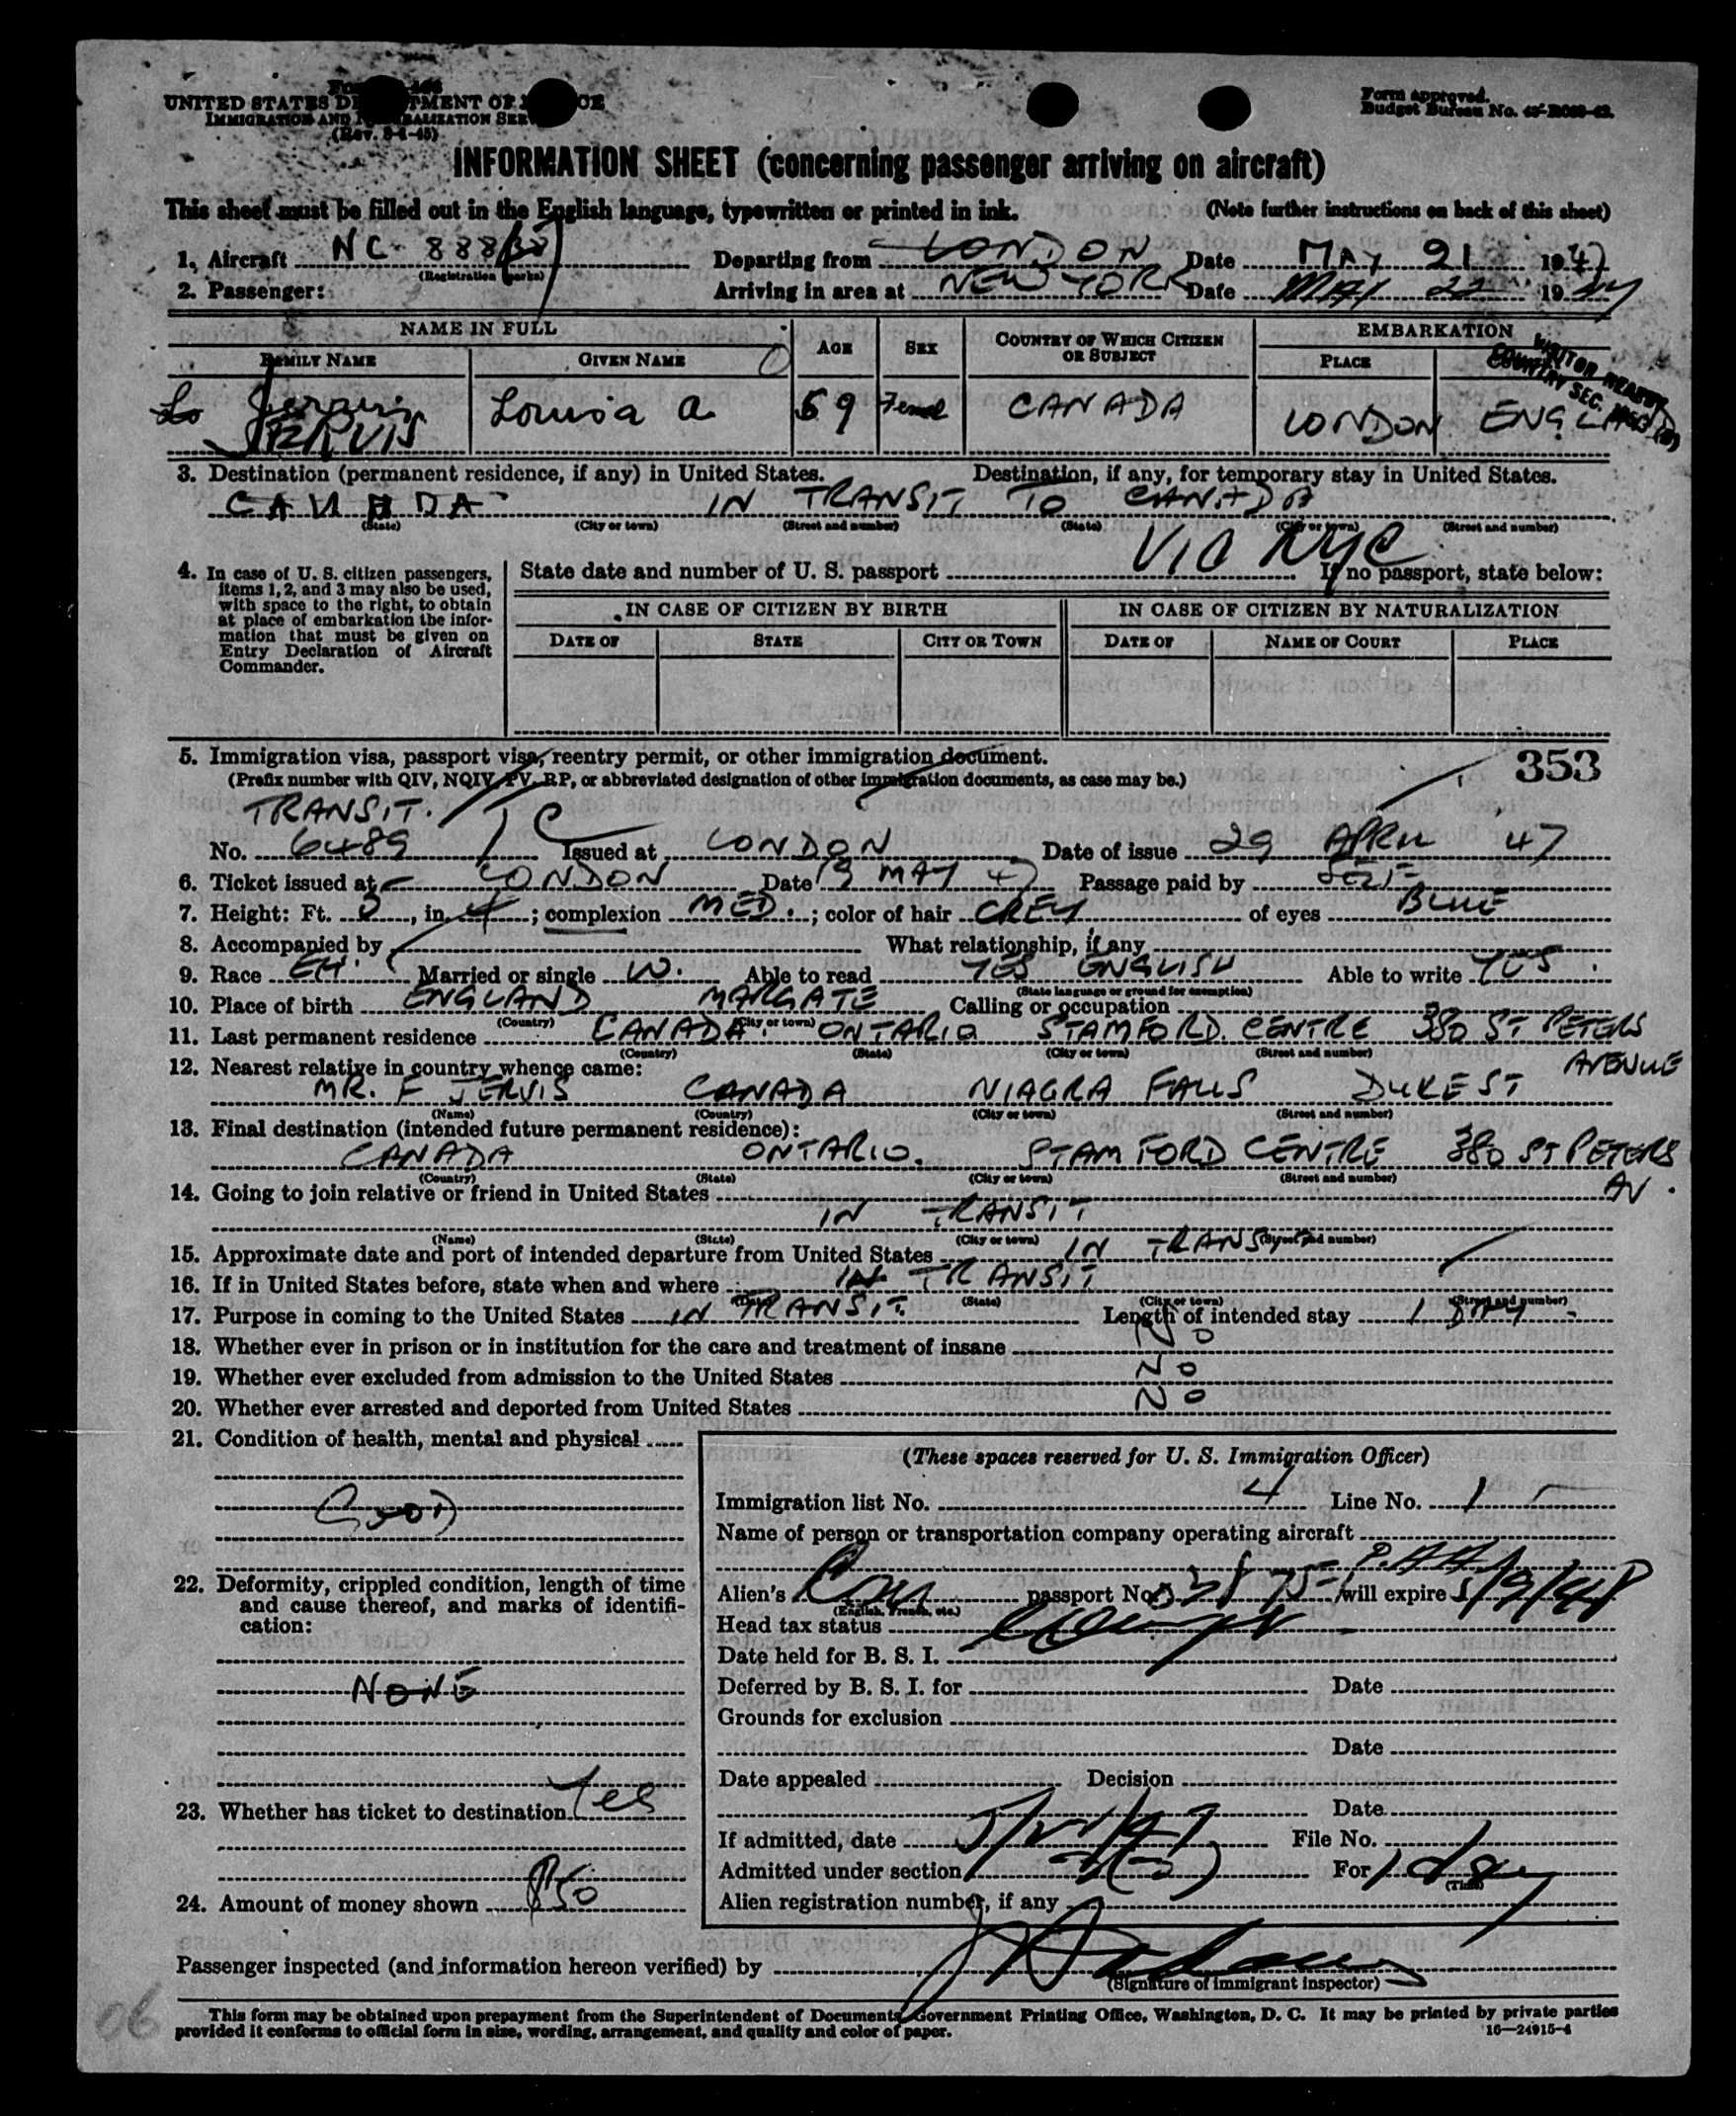 UNITED STATES
IMMIGRATION AND
(Rev. 8-1-45)
Form approved.
Budget Bureau No.
INFORMATION SHEET (concerning passenger arriving on aircraft)
This sheet must be filled out in the English language, typewritten or printed in ink. (Note further instructions on back of this sheet)
1. Aircraft NC- Departing from LONDON Date MAY 21 1947
(Registration marks)
2. Passenger: Arriving in area at NEW YORK Date MAY 22 1947
NAME IN FULL AGE SEX COUNTRY OF WHICH CITIZEN OR SUBJECT EMBARKATION
FAMILY NAME GIVEN NAME PLACE COUNTRY
VISITOR READY
SEC.
Jervis Louisa A. 59 CANADA LONDON ENGLAND
JERVIS
3. Destination (permanent residence, if any) in United States. Destination, if any, for temporary stay in United States.
CANADA IN TRANSIT TO CANADA
(State) (City or town) (Street and number) (State) (City or town) (Street and number)
VIA NYC
4. In case of U. S. citizen passengers, items 1, 2, and 3 may also be used, with space to the right, to obtain at place of embarkation the information that must be given on Entry Declaration of Aircraft Commander.
State date and number of U. S. passport If no passport, state below:
IN CASE OF CITIZEN BY BIRTH IN CASE OF CITIZEN BY NATURALIZATION
DATE OF STATE CITY OR TOWN DATE OF NAME OF COURT PLACE
5. Immigration visa, passport visa, reentry permit, or other immigration document. 353
(Prefix number with QIV, NQIV, PV, RP, or abbreviated designation of other immigration documents, as case may be.)
TRANSIT. TC
No. 6489 Issued at LONDON Date of issue 29 APRIL 47
6. Ticket issued at LONDON Date 19 MAY 47 Passage paid by SELF
7. Height: Ft. 5, in. 4; complexion MED.; color of hair GREY of eyes BLUE
8. Accompanied by What relationship, if any
9. Race Married or single W. Able to read YES ENGLISH Able to write YES.
(State language or ground for exemption)
10. Place of birth ENGLAND MARGATE Calling or occupation
(Country) (City or town)
11. Last permanent residence CANADA ONTARIO STAMFORD CENTRE 380 ST PETERS
(Country) (State) (City or town) (Street and number)
AVENUE
12. Nearest relative in country whence came:
MR. F JERVIS CANADA NIAGRA FALLS DUKE ST
(Name) (Country) (City or town) (Street and number)
13. Final destination (intended future permanent residence):
CANADA ONTARIO. STAMFORD CENTRE 380 ST PETERS
(Country) (State) (City or town) (Street and number)
AV.
14. Going to join relative or friend in United States
IN TRANSIT
(Name) (State) (City or town) (Street and number)
15. Approximate date and port of intended departure from United States IN TRANSIT
16. If in United States before, state when and where IN TRANSIT
(State) (City or town) (Street and number)
17. Purpose in coming to the United States IN TRANSIT. Length of intended stay 1 DAY
18. Whether ever in prison or in institution for the care and treatment of insane NO
19. Whether ever excluded from admission to the United States NO
20. Whether ever arrested and deported from United States NO
21. Condition of health, mental and physical
GOOD
22. Deformity, crippled condition, length of time and cause thereof, and marks of identification:
NONE
23. Whether has ticket to destination Yes
24. Amount of money shown $50
(These spaces reserved for U. S. Immigration Officer)
Immigration list No. 4 Line No. 1
Name of person or transportation company operating aircraft
P.A.A.
Alien's Can passport No. will expire
(English, French, etc.)
Head tax status
Date held for B. S. I.
Deferred by B. S. I. for Date
Grounds for exclusion
Date
Date appealed Decision
Date
If admitted, date File No.
Admitted under section For 1 day
(Time)
Alien registration number, if any
Passenger inspected (and information hereon verified) by
(Signature of immigrant inspector)
06
This form may be obtained upon prepayment from the Superintendent of Documents, Government Printing Office, Washington, D. C. It may be printed by private parties
provided it conforms to official form in size, wording, arrangement, and quality and color of paper. 16—24915-4